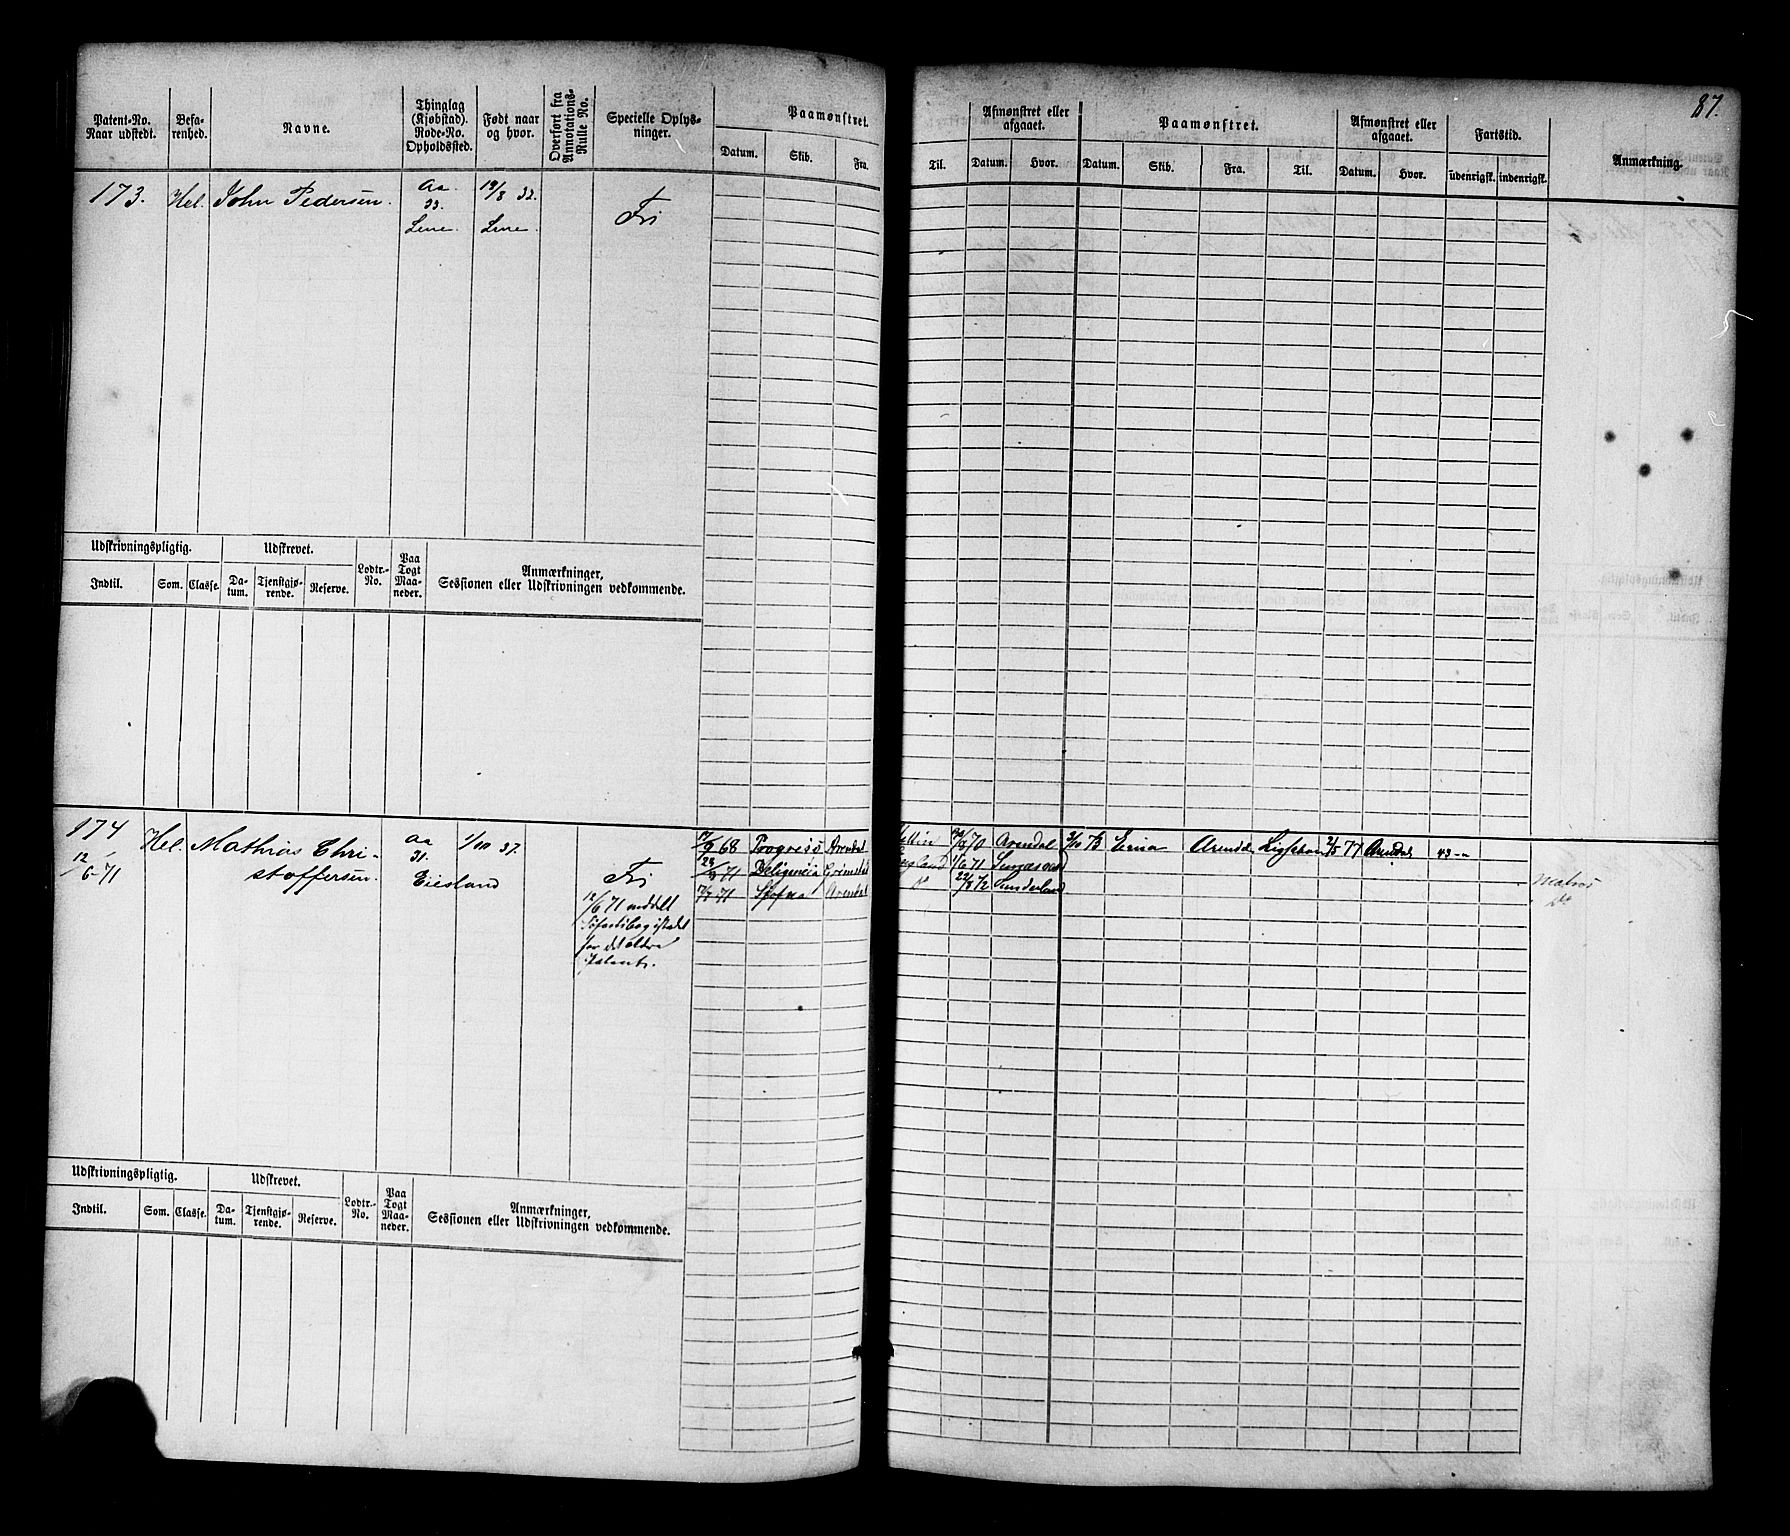 87.
Patent-No. Naar udstedt.
Befarenhed.
Navne.
Thinglag (Kjøbstad). Rode-No. Opholdssted.
Født naar og hvor.
Overført fra Annotations-Rulle No.
Specielle Oplysninger.
Paamønstret.
Datum. Skib. Fra. Til.
Afmønstret eller afgaaet.
Datum. Hvor.
Paamønstret.
Datum. Skib. Fra. Til.
Afmønstret eller afgaaet.
Datum. Hvor.
Fartstid.
udenrigsk. indenrigsk.
Anmærkning.
173. Hel. John Pedersen. Aa. 19/8 32.
33. Fri
Udskrivningspligtig. Udskrevet. Lodtr.-No. Paa Togt Maaneder. Anmærkninger, Sessionen eller Udskrivningen vedkommende.
Indtil. Som. Classe. Datum. Tjenstgjørende. Reserve.
174 Hel. Mathias Chri- Aa 1/10 37. 17/9 68 Progress Arendal 70 Arendal 73 Arendal 77 Arendal 43
12/6-71 stoffersen. 31. Eiesland Fri 71 Deligencia Grimstad 71
12/6 71 meddelt 71 Arendal 22/8 72 Sunderland Matros
for det ældre Do
Patent.
Udskrivningspligtig. Udskrevet. Lodtr.-No. Paa Togt Maaneder. Anmærkninger, Sessionen eller Udskrivningen vedkommende.
Indtil. Som. Classe. Datum. Tjenstgjørende. Reserve.